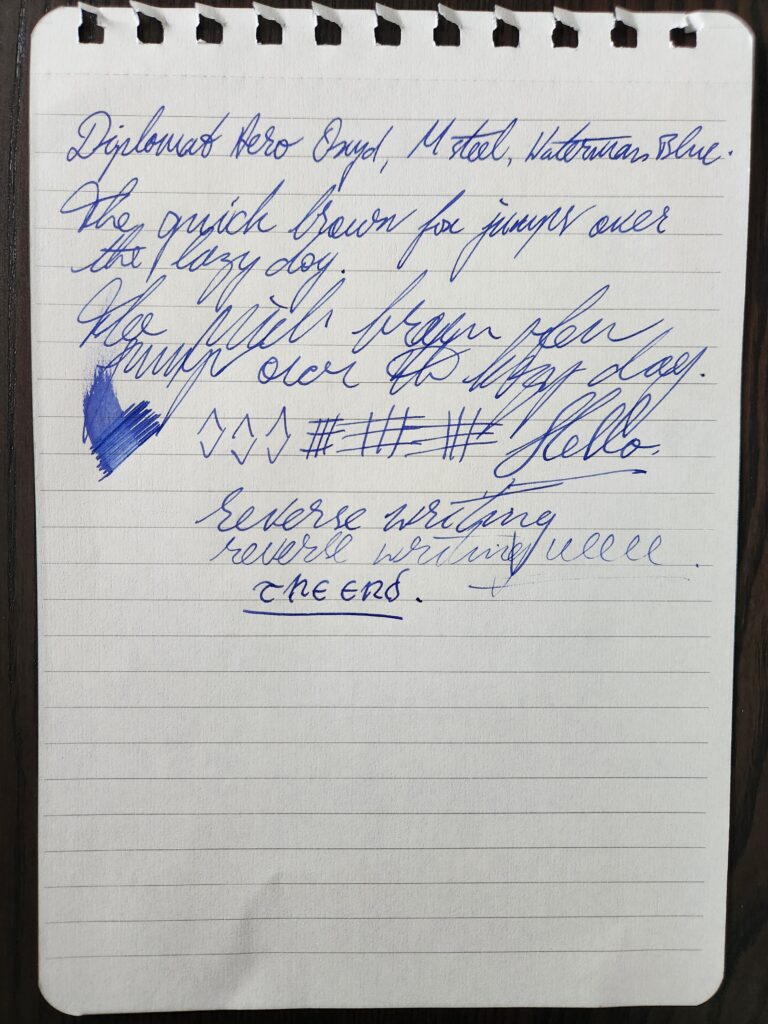 Diplomat Aero Oxyd, M steel, Waterman Blue.
The quick brown fox jumps over
the lazy dog.
The quick brown fox
jumps over the lazy dog.
Hello.
reverse writing
reverse writing eeeee.
THE END.